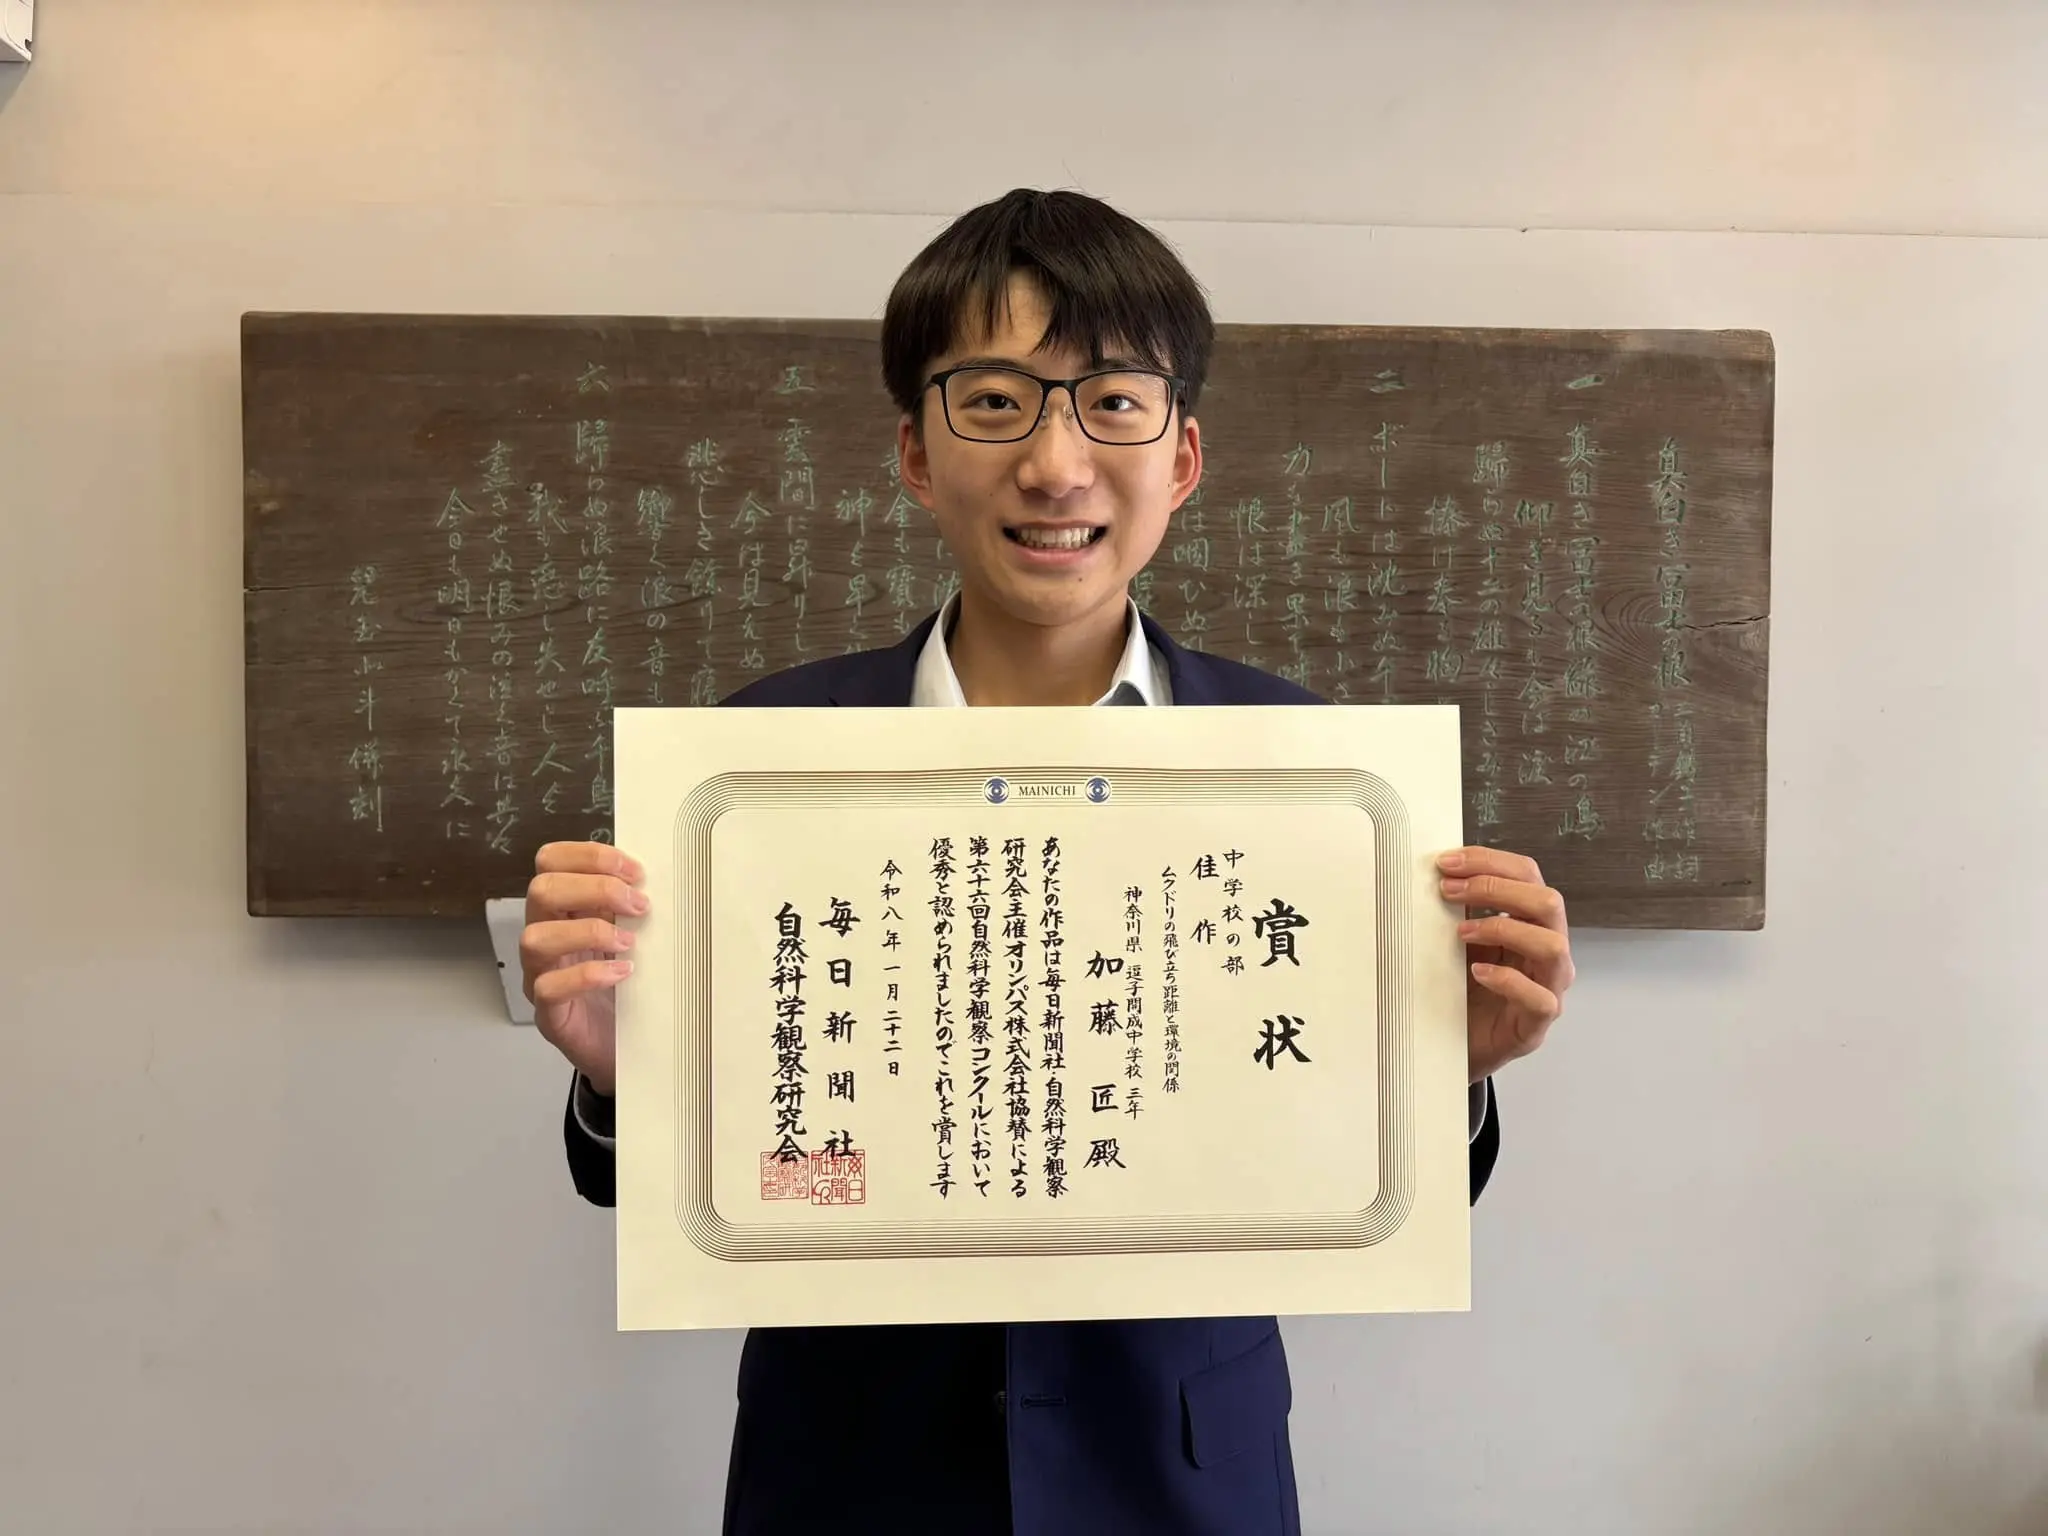 MAINICHI
賞状
中学校の部
佳作
ムクドリの飛び立ち距離と環境の関係
神奈川県 逗子開成中学校 三年
加藤 匠 殿
あなたの作品は毎日新聞社・自然科学観察
研究会主催オリンパス株式会社協賛による
第六十六回自然科学観察コンクールにおいて
優秀と認められましたのでこれを賞します
令和八年一月二十二日
毎日新聞社
自然科学観察研究会
真白き富士の根 三角錫子作詞
ガーデン作曲
一 真白き富士の根 緑の江の島
仰ぎ見るも 今は涙
歸らぬ十二の雄々しきみ霊に
捧げ奉る 胸
二 ボートは沈みぬ 千
風も浪も 小さ
力も盡き果て 呼
恨は深し
神も早く
五 雲間に昇りし
今は見えぬ
悲しさ餘りて 寝
響く浪の音も
六 歸らぬ浪路に 友呼ぶ千鳥の
我も恋し 失せし人よ
盡きせぬ恨みの 泣く音は共々
今日も明日も かくて永久に